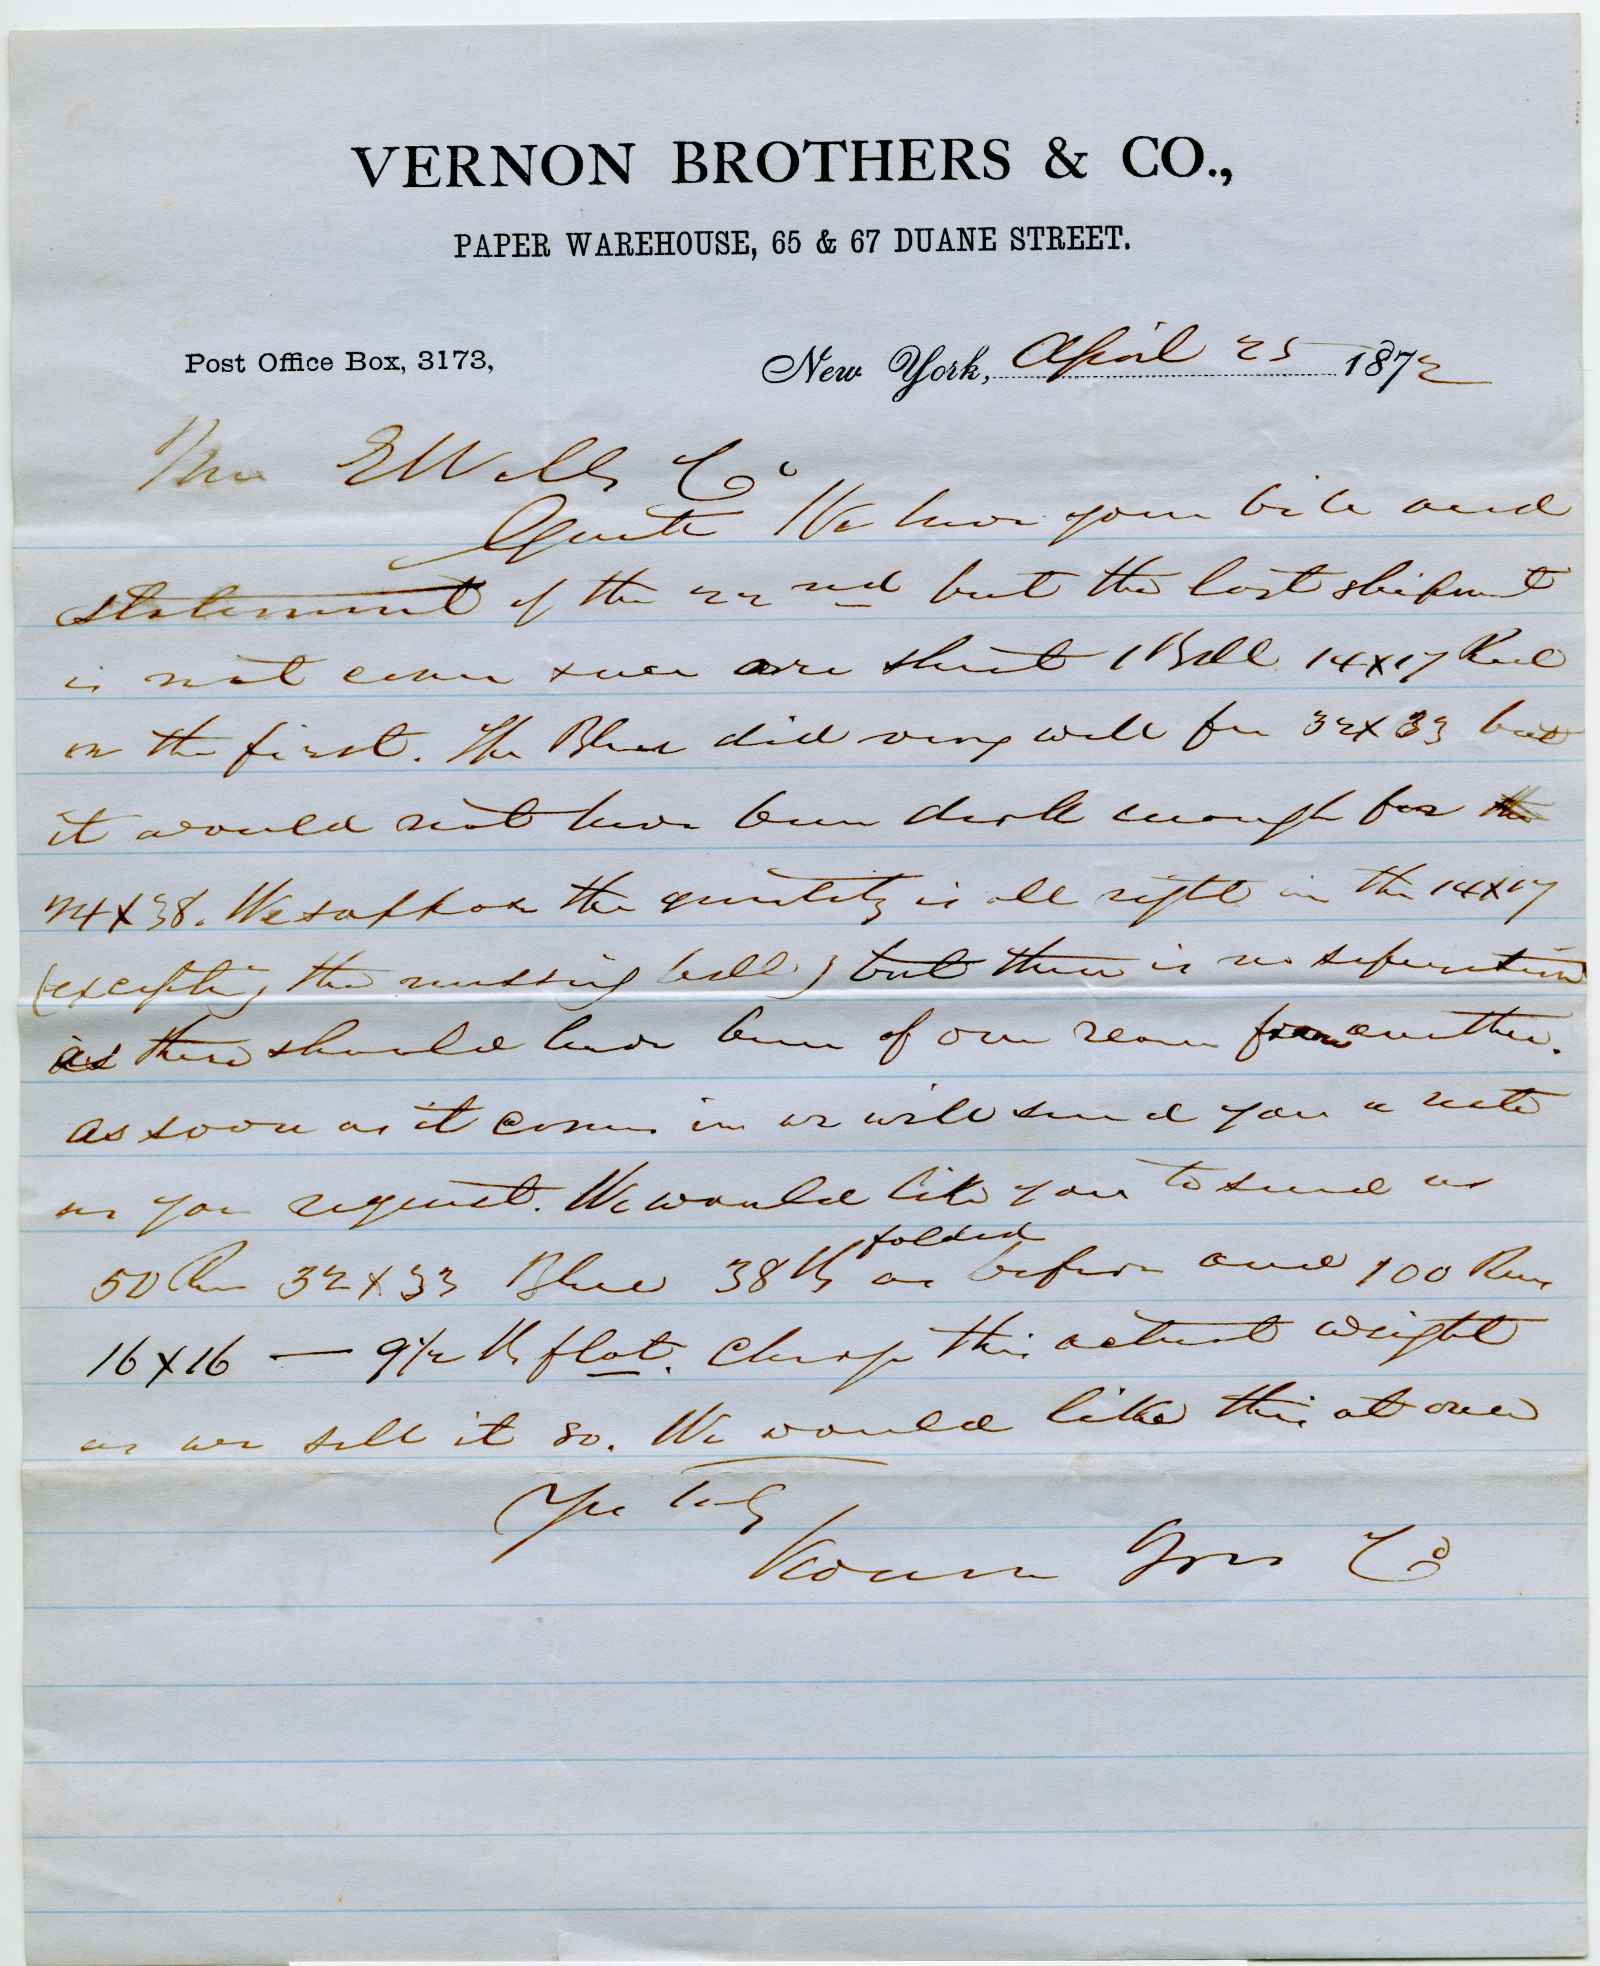 VERNON BROTHERS & CO.,
PAPER WAREHOUSE, 65 & 67 DUANE STREET.
Post Office Box, 3173,
New York, April 25 1872
E Wells Co
Gents We have your bill and
statement of the 22nd but the last shipment
is not come & we are short 1 Bdll 14x17 Red
on the first. The Blue did very well for 32x33 but
it would not have been dark enough for the
24x38. We suppose the quantity is all right in the 14x17
(excepting the missing bdll) but there is no seperation
as there should have been of one ream from another.
as soon as it comes in we will send you a note
as you request. We would like you to send us
folded
50 Rms 32x33 Blue 38 lb as before and 100 Rms
16x16 — 9 1/2 lb flat. Charge this actual weight
as we sell it so. We would like this at once
Yrs truly
Vernon Bros Co